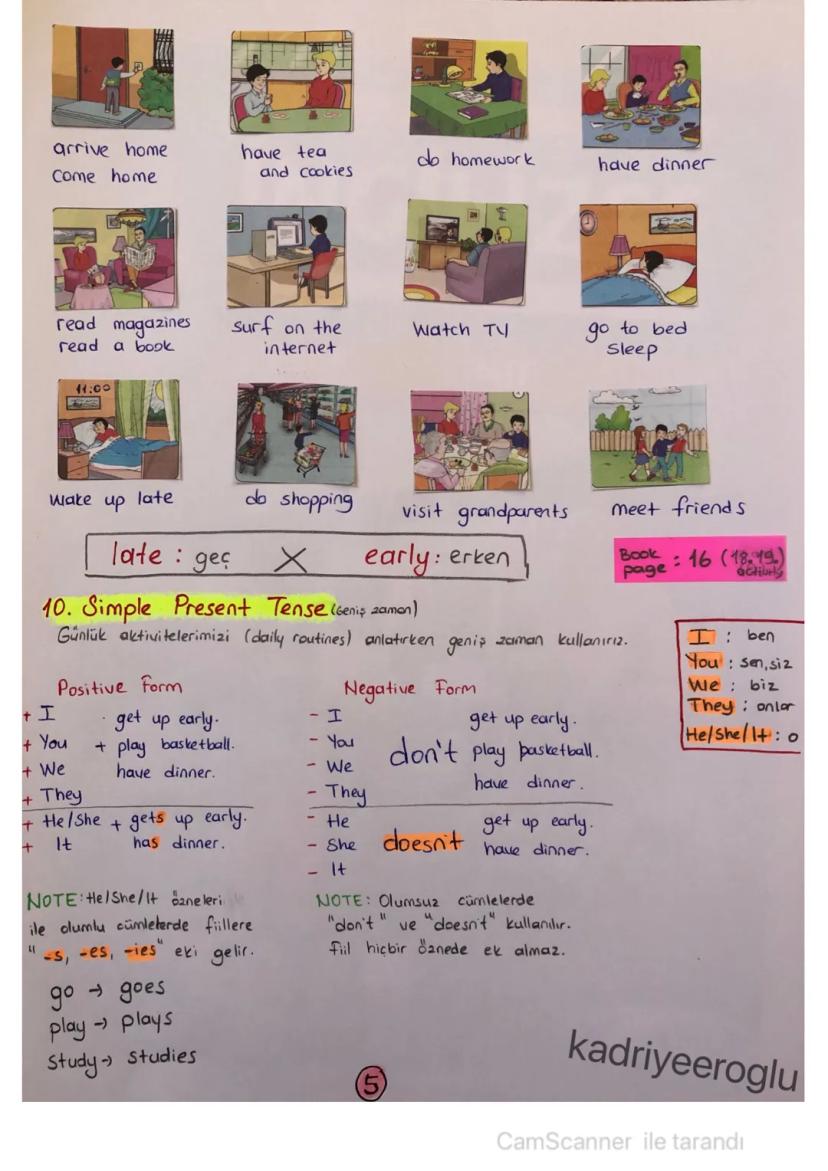 arrive home
come home
have tea
and cookies
do homework
have dinner
read magazines
read a book
surf on the
internet
watch TV
go to bed
sleep
11:00
wake up late
do shopping
visit grandparents
meet friends
late : geç X early : erken
Book
page : 16 (18.19.)
activity
10. Simple Present Tense (Geniş zaman)
Günlük aktivitelerimizi (daily routines) anlatırken geniş zaman kullanırız.
I : ben
You : sen, siz
We : biz
They : onlar
He/She/It : o
Positive Form
+ I get up early.
+ You + play basketball.
+ We have dinner.
+ They
+ He/She + gets up early.
+ It has dinner.
Negative Form
- I get up early.
- You don't play basketball.
- We have dinner.
- They
- He get up early.
- She doesn't have dinner.
- It
NOTE: He/She/It özneleri
ile olumlu cümlelerde fiillere
"-s, -es, -ies" eki gelir.
go → goes
play → plays
study → studies
NOTE: Olumsuz cümlelerde
"don't" ve "doesn't" kullanılır.
fiil hiçbir öznede ek almaz.
5
kadriyeeroglu
CamScanner ile tarandı